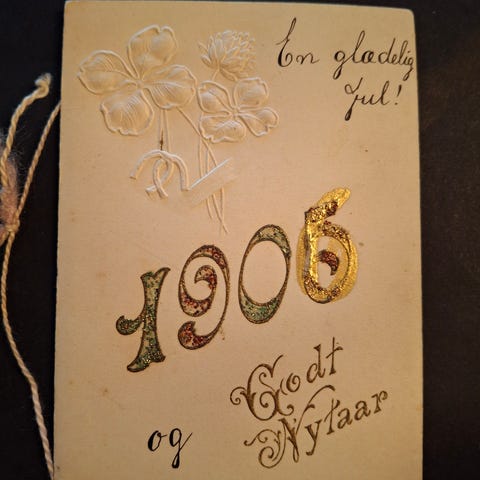 En glædelig
Jul!
1906
og
Godt
Nytaar